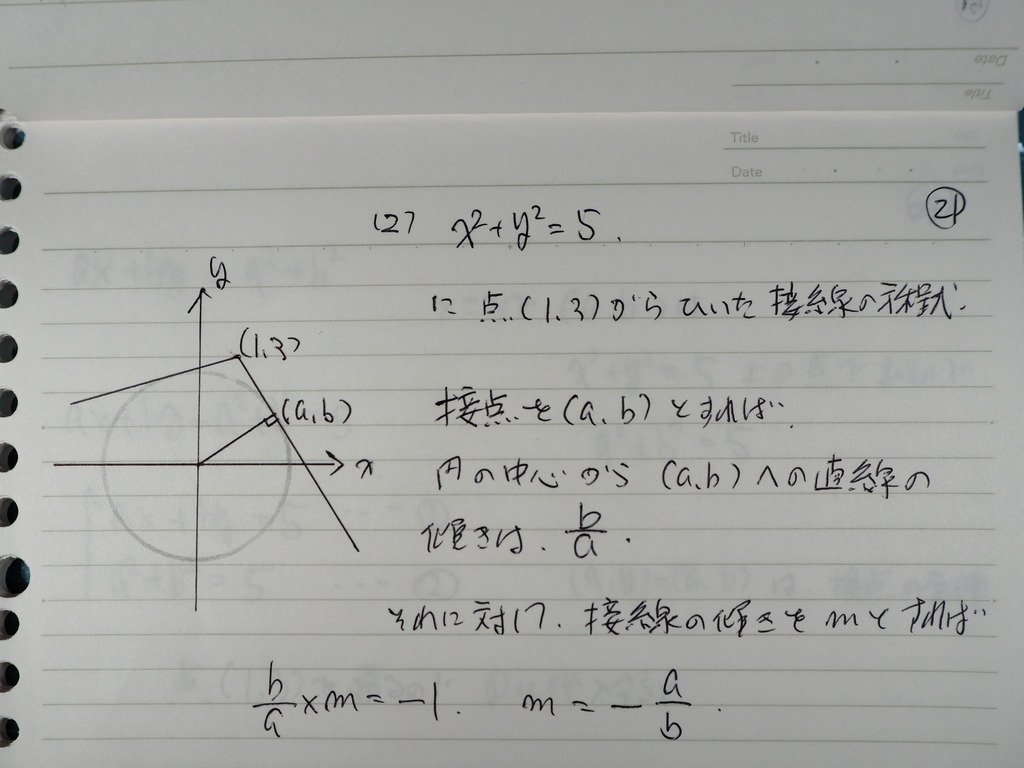 Date
Title
Title
Date
(2) x²+y²=5.
21
に点(1,3)からひいた接線の方程式.
y
(1,3)
(a,b)
x
接点を(a,b)とすれば
円の中心から(a,b)への直線の
傾きは. b/a.
それに対して. 接線の傾きをmとすれば
b/a×m=-1. m=-a/b.